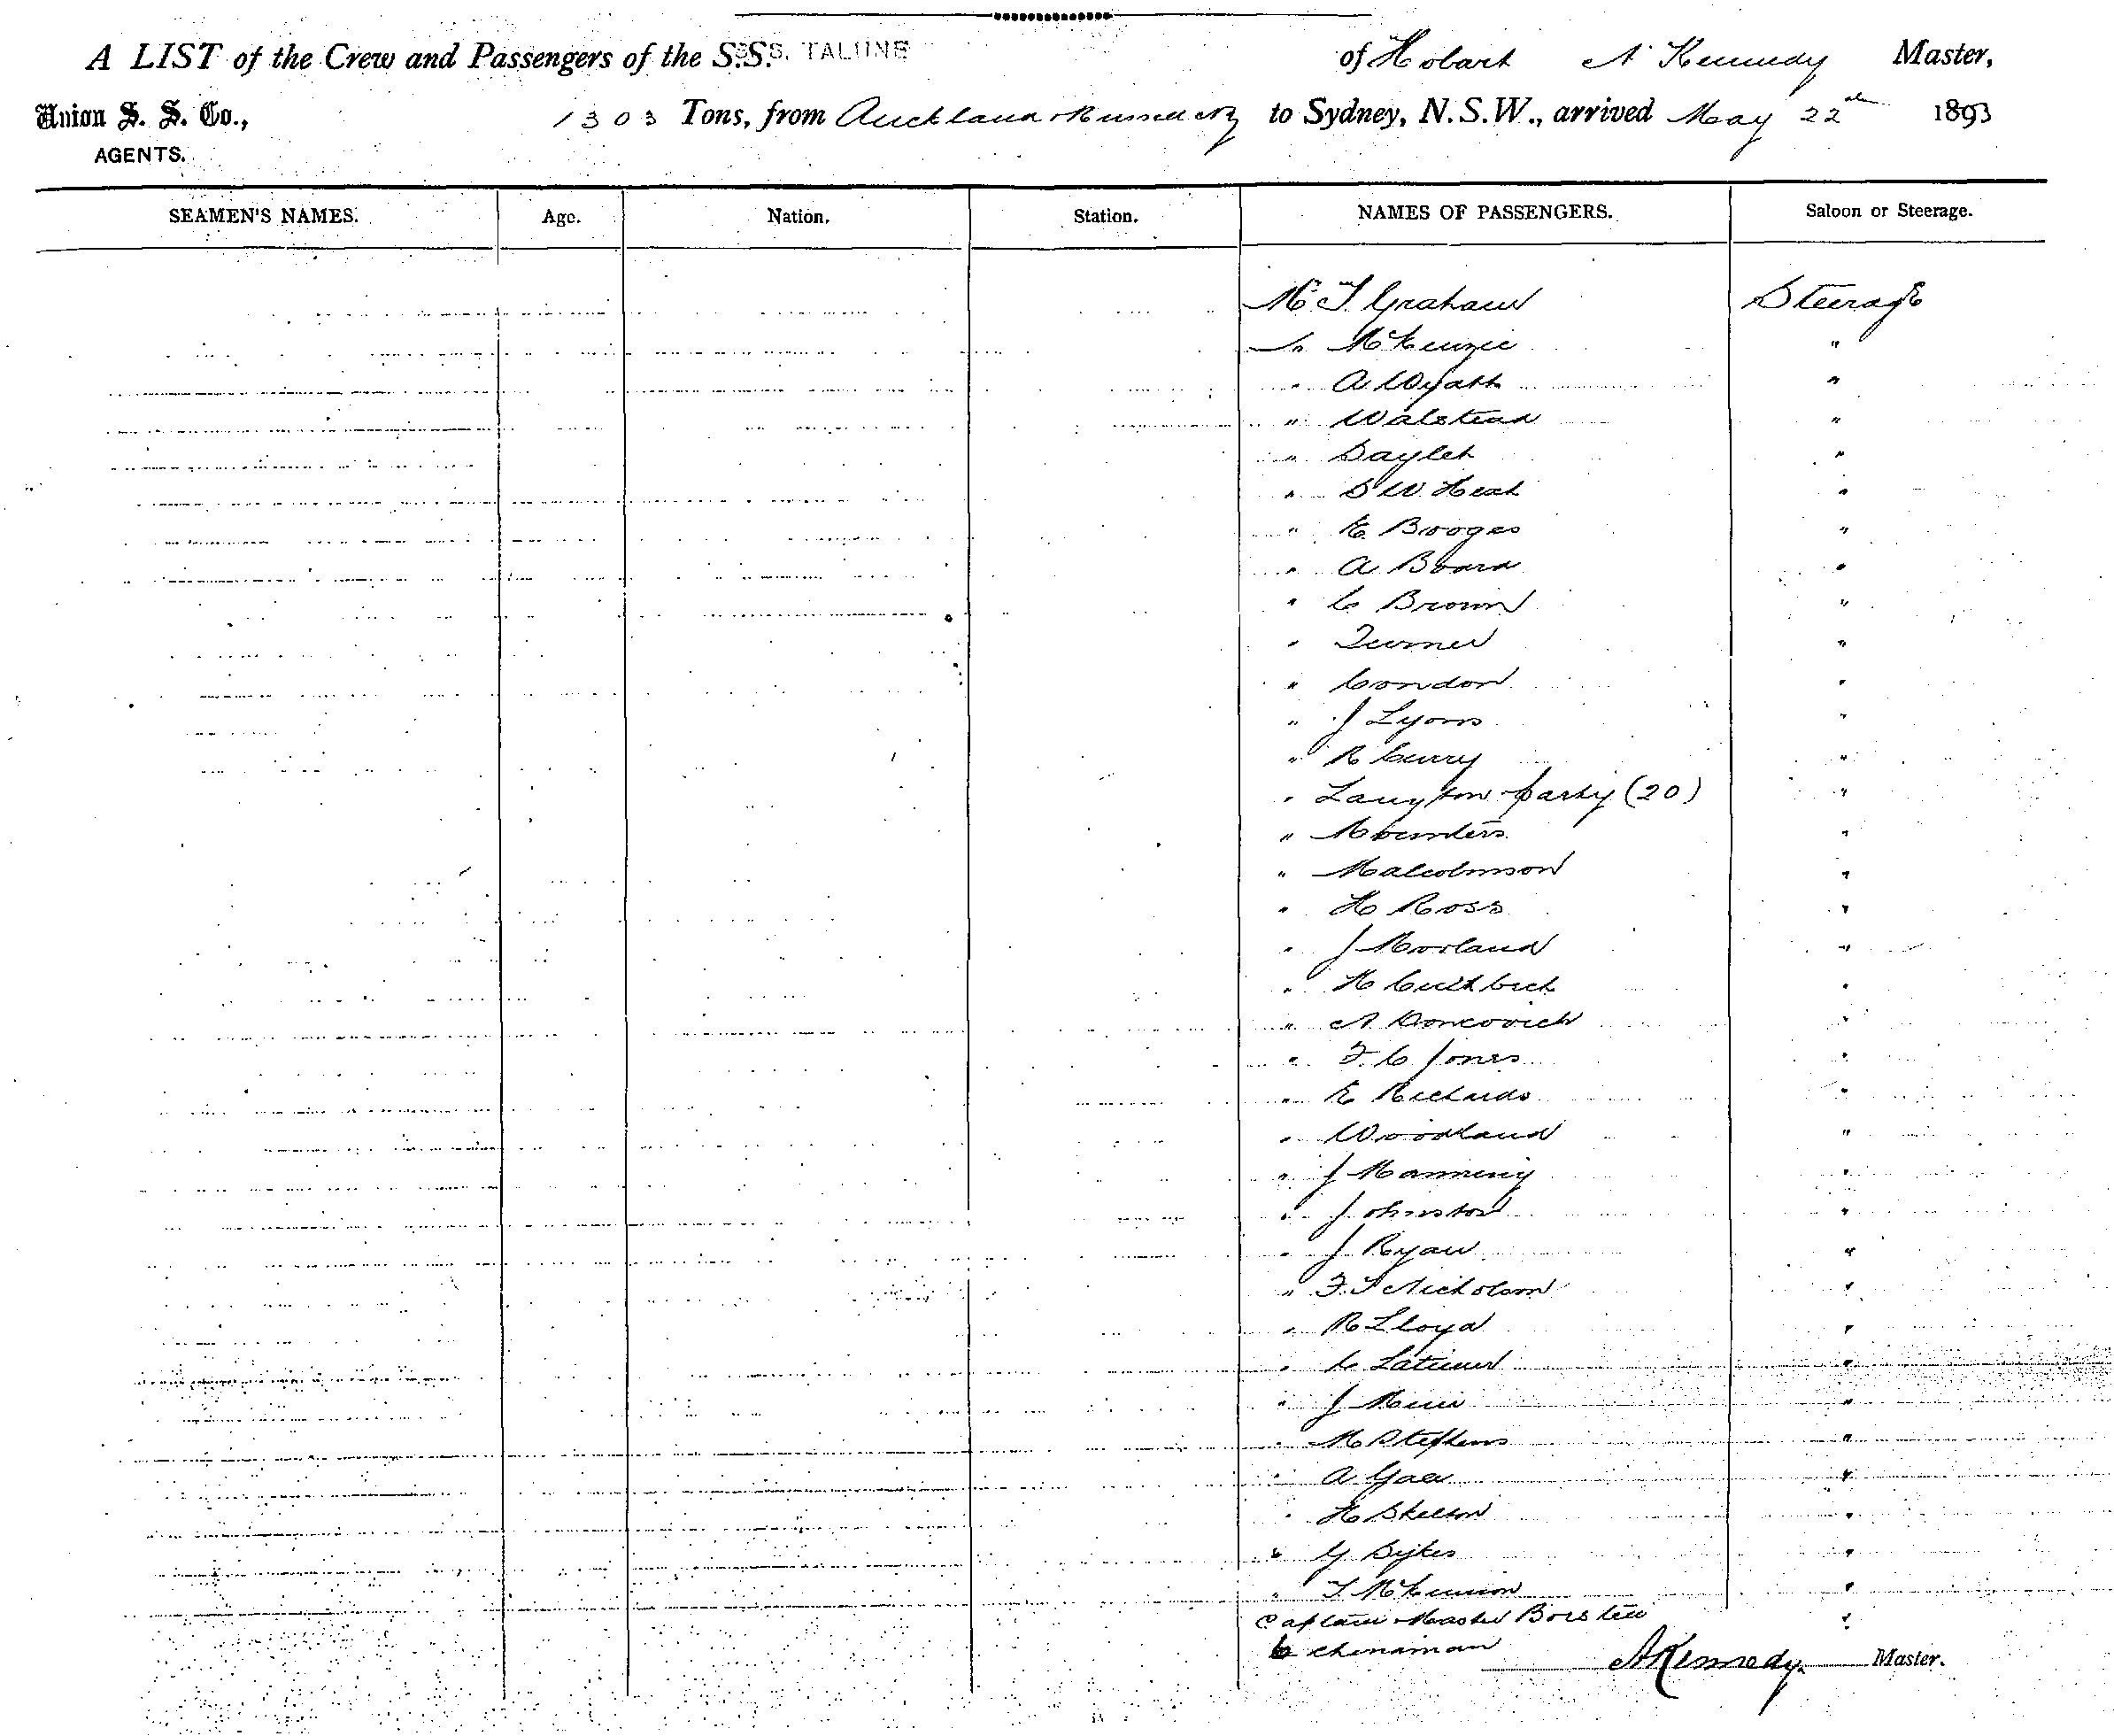 A LIST of the Crew and Passengers of the S.S. S.S. TALUNE of Hobart A Kennedy Master,
Union S. S. Co., 1303 Tons, from Auckland Russell NZ to Sydney, N.S.W., arrived May 22nd 1893
AGENTS.
SEAMEN'S NAMES. Age. Nation. Station. NAMES OF PASSENGERS. Saloon or Steerage.
Mr T. Graham Steerage
" McKenzie "
" A Wyatt "
" Walstead "
" Daylet "
" D W. Heat "
" E. Brooges "
" A Board "
" C Brown "
" Turner "
" Condon "
" J Lyons "
" R Curry "
" Langton party (20) "
" Mounters "
" Malcolmson "
" H Ross "
" J Morland "
" H Cuthbert "
" A Doncovich "
" F. C Jones "
" E Richards "
" Woodland "
" J Manning "
" Johnston "
" J Ryan "
" F. T Nicholson "
" R Lloyd "
" C Latimer "
" J "
" M Stephens "
" A "
" H Skelton "
" G Sykes "
" T McKinnon "
Captain Master "
6 chinaman A Kennedy. Master.